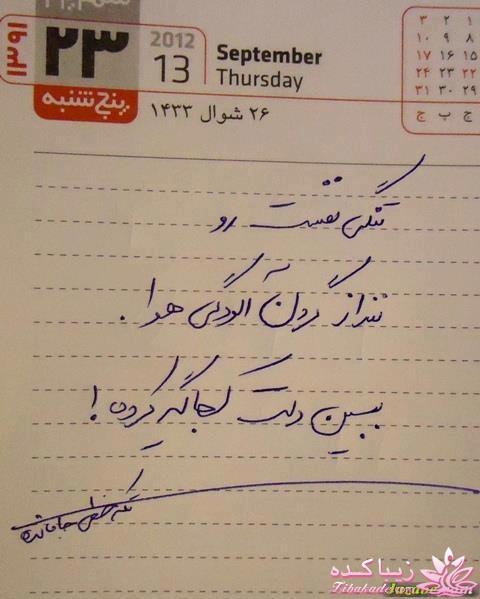 ۱۳۹۱
۲۳
پنج‌شنبه
2012
13
September
Thursday
۲۶ شوال ۱۴۳۳
۳ ۲ ۱
۱۰ ۹ ۸
۱۷ ۱۶ ۱۵
۲۴ ۲۳ ۲۲
۳۱ ۳۰ ۲۹
ج پ ج
تنگی نفست رو
ننداز گردن آلودگی هوا.
ببین دلت کجا گیر کرده!
زیباکده